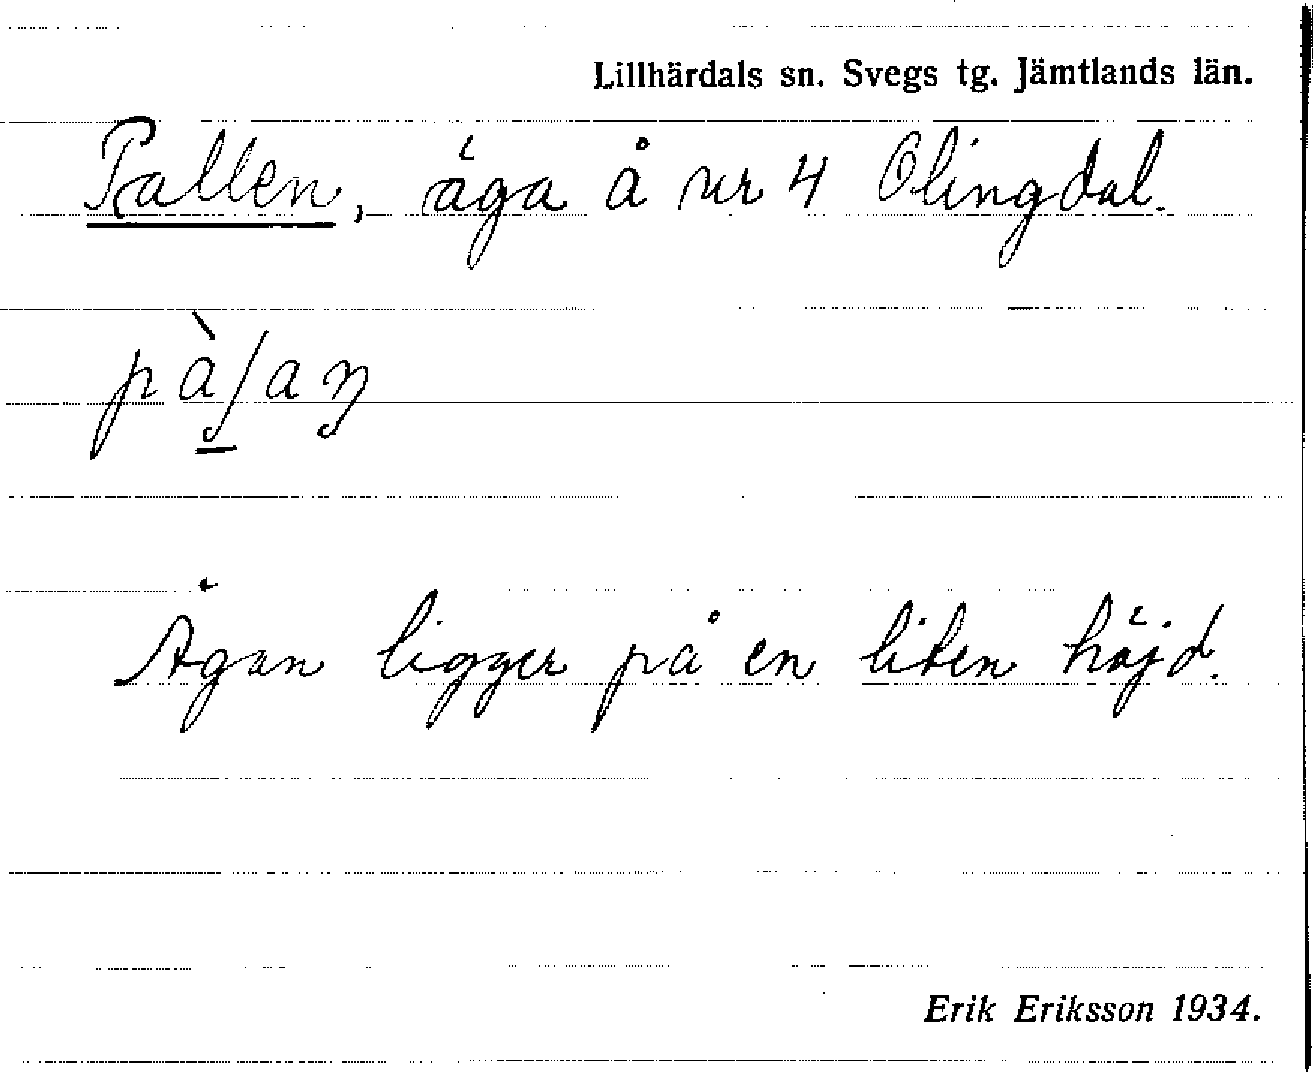 Lillhärdals sn. Svegs tg. Jämtlands län.
Pallen, åga å nr 4 Olingdal.
Ågan ligger på en liten höjd.
Erik Eriksson 1934.